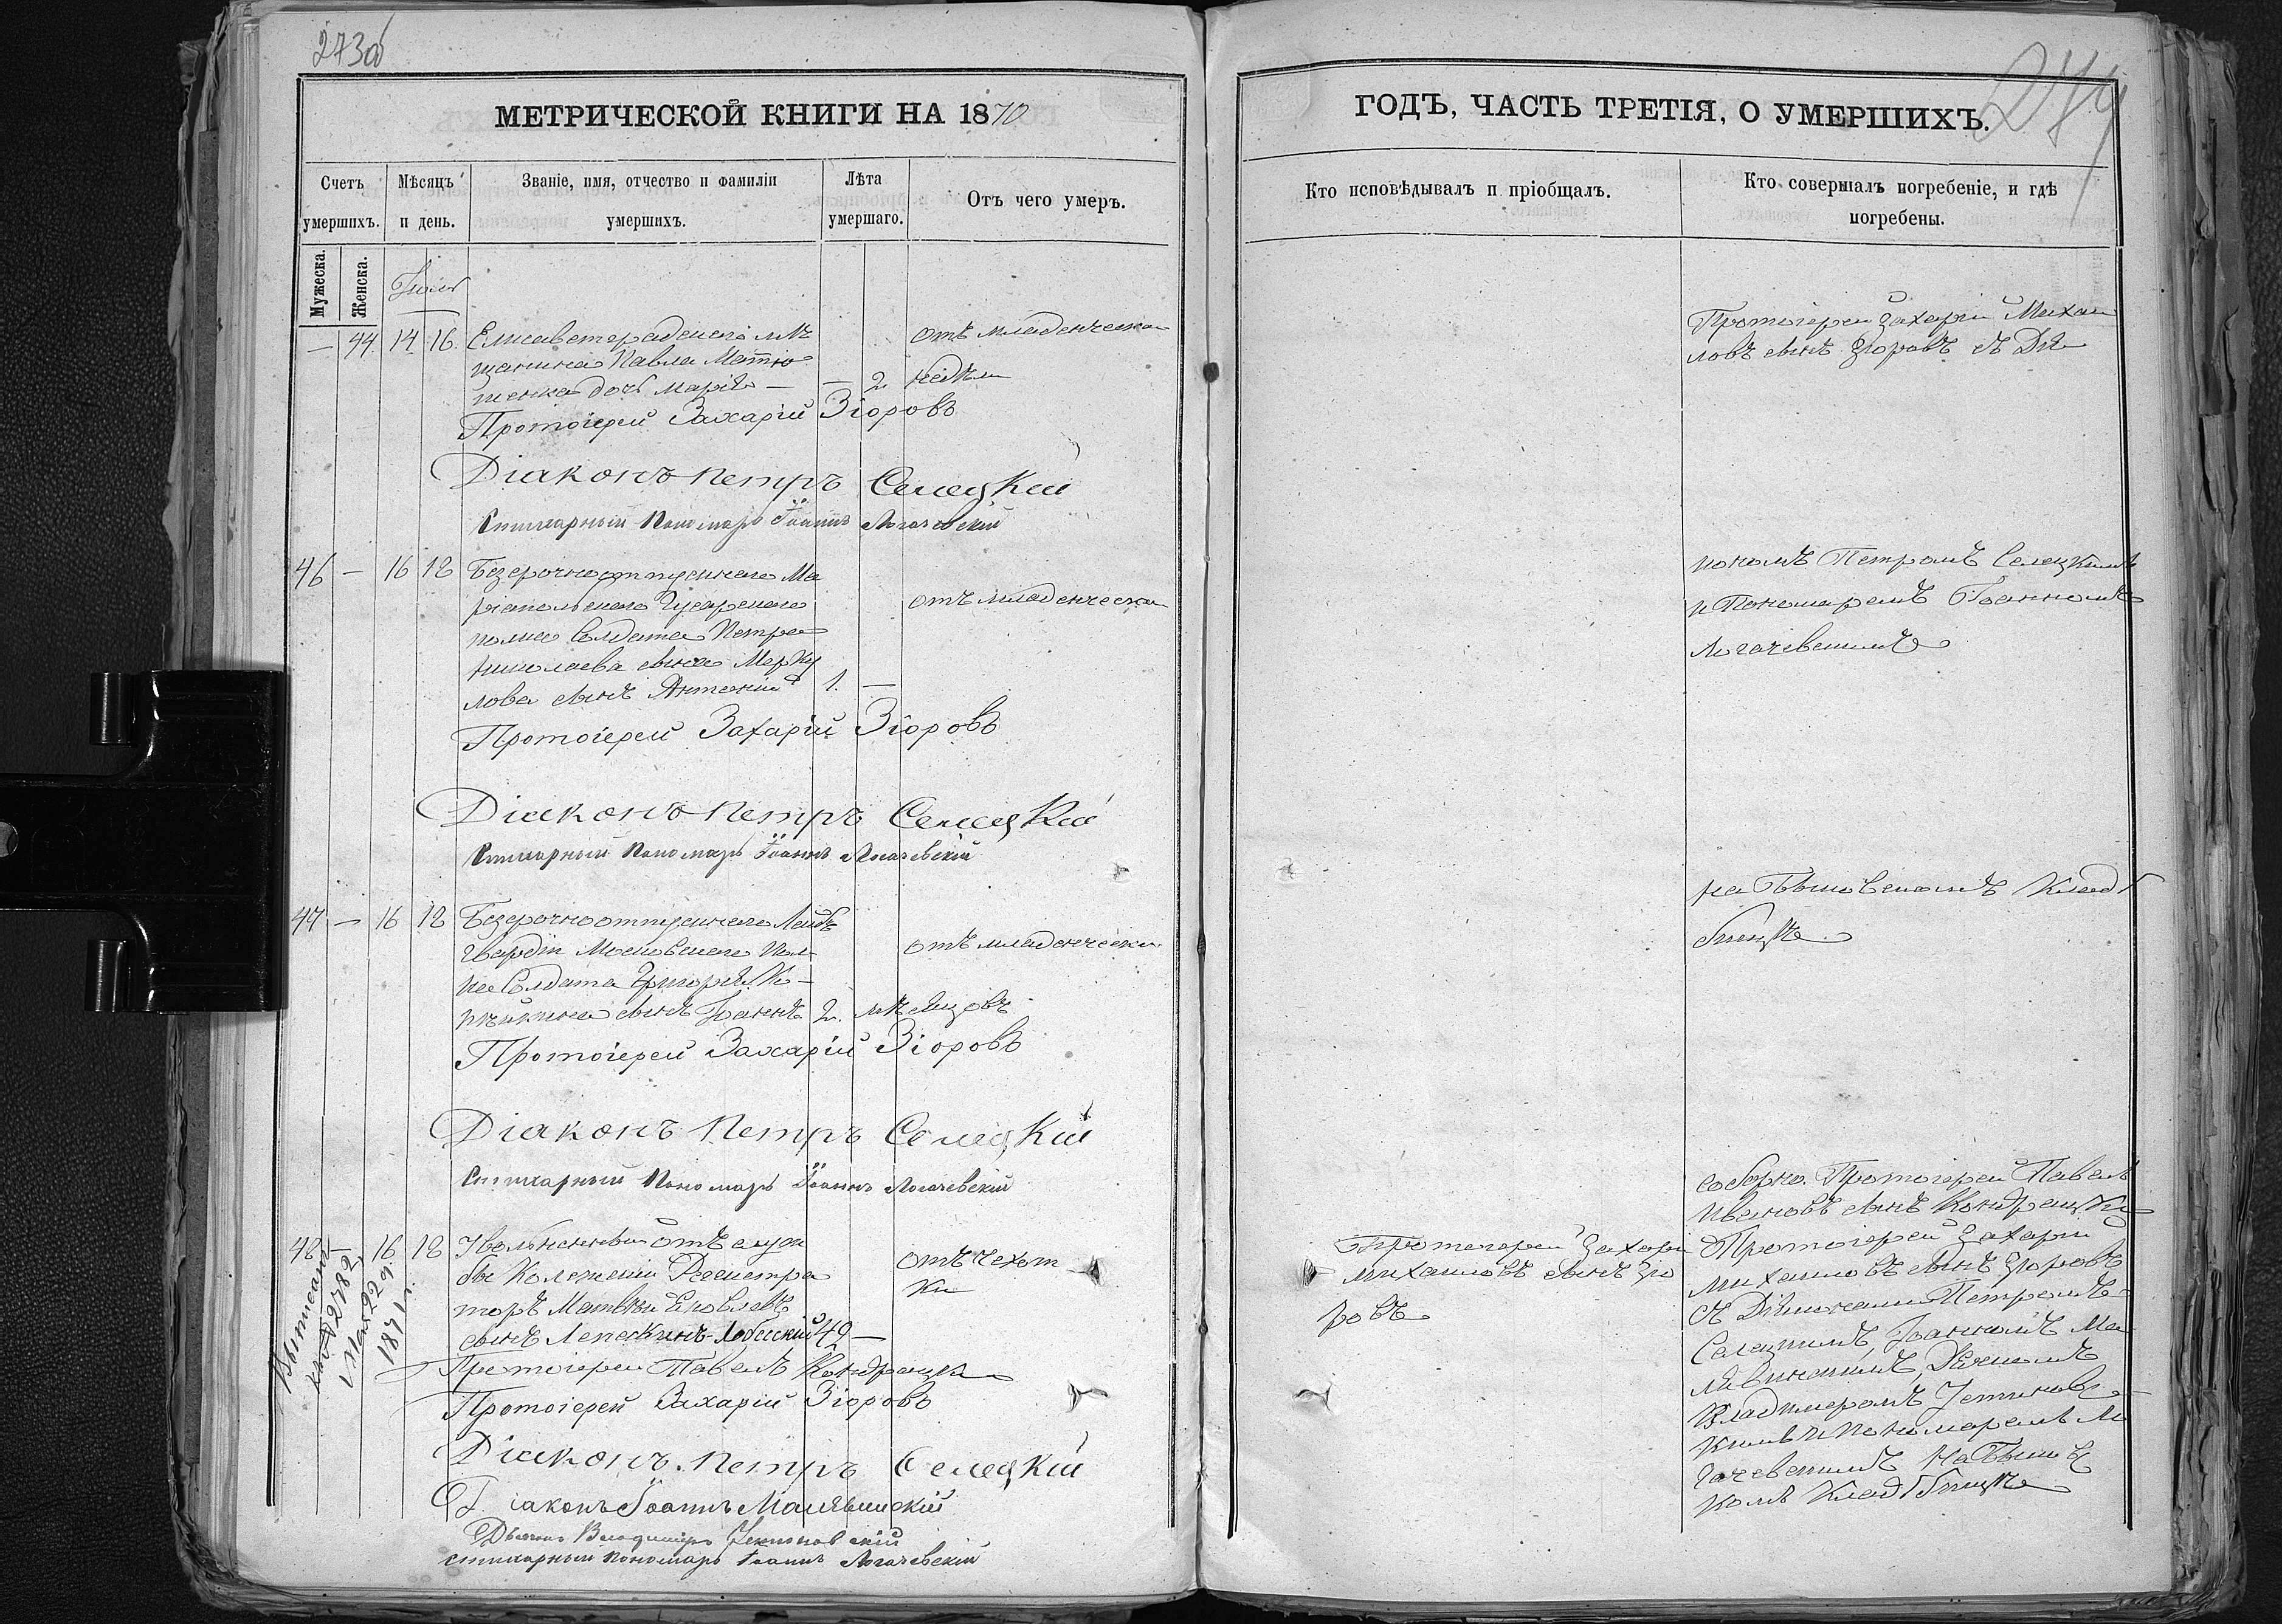 273об
МЕТРИЧЕСКОЙ КНИГИ НА 1870
Счетъ умершихъ.
Мѣсяцъ и день.
Званіе, имя, отчество и фамиліи умершихъ.
Лѣта умершаго.
Отъ чего умеръ.
Мужеска.
Женска.
Іюль
— 44 14 16 Елисаветградскаго мѣ
щанина Павла Матю
шенка дочь Марія — — 2 недѣли
отъ младенческа
Протоіерей Захарій Зіоровъ
Діаконъ Петръ Селецкій
Стихарный Пономарь Іоаннъ Логачевскій
46 — 16 18 Безсрочноотпускнаго Ма
ріапольскаго Гусарскаго
полка Солдата Петра
Николаева сына Мерку
лова сынъ Антоній 1. —
отъ младенческа
Протоіерей Захарій Зіоровъ
Діаконъ Петръ Селецкій
Стихарный Пономарь Іоаннъ Логачевскій
47 — 16 18 Безсрочноотпускнаго Лейбъ
гвардіи Московскаго Пол-
ка Солдата Григорія
сынъ Іоаннъ 2. мѣсяцовъ
отъ младенческа
Протоіерей Захарій Зіоровъ
Діаконъ Петръ Селецкій
Стихарный Пономарь Іоаннъ Логачевскій
48 — 16 18 Уволенный отъ служ
бы Колежскій Регистра
торъ Матвѣй Яковлевъ
сынъ Лепескинъ-Лобускій 49 —
отъ чехот
ки
Протоіерей Павелъ Кондрацки
Протоіерей Захарій Зіоровъ
Діаконъ Петръ Селецкій
Діаконъ Іоаннъ Малявинскій
Дьячокъ Владиміръ Устиновскій
стихарный пономарь Іоаннъ Логачевскій
Выписано
№ 2782
Мая 22 д.
1871 г.
274
ГОДЪ, ЧАСТЬ ТРЕТІЯ, О УМЕРШИХЪ.
Кто исповѣдывалъ и пріобщалъ.
Кто совершалъ погребеніе, и гдѣ погребены.
Протоіерей Захарій Михаи
ловъ сынъ Зіоровъ съ Дія
кономъ Петромъ Селецкимъ
и Пономаремъ Іоанномъ
Логачевскимъ
на Быковскомъ Клад
бищѣ
Протоіерей Захарі
Михаиловъ сынъ Зіо
ровъ
соборно. Протоіерей Павелъ
Ивановъ сынъ Кондрацкі
Протоіерей Захарій
Михаиловъ сынъ Зіоровъ
съ Діяконами Петромъ
Селецкимъ, Іоанномъ Ма
лявинскимъ, Дячкомъ
Владимеромъ Устиновс
кимъ и пономаремъ Ло
гачевскимъ на Быковс
комъ Кладбищѣ